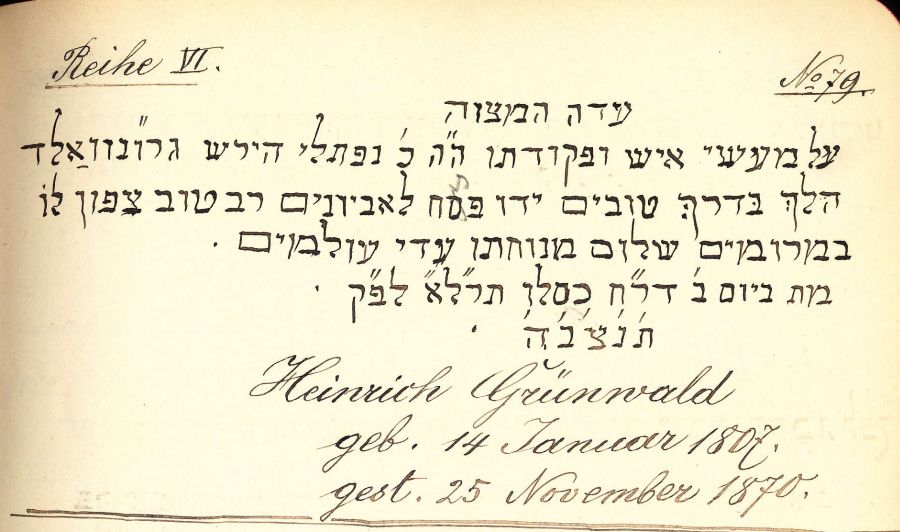 Reihe VI. No 79.
עדה המצוה
על מעשי איש ופקודתו ה"ה כ' נפתלי הירש גרו"נוואַלד
הלך בדרך טובים ידו פסח לאביונים רב טוב צפון לו
במרומים שלום מנוחתו עדי עולמים .
מת ביום ב' דר"ח כסלו תר"ל"א לפ"ק .
ת'נ'צ'ב'ה' .
Heinrich Grünwald
geb. 14 Januar 1807.
gest. 25 November 1870.